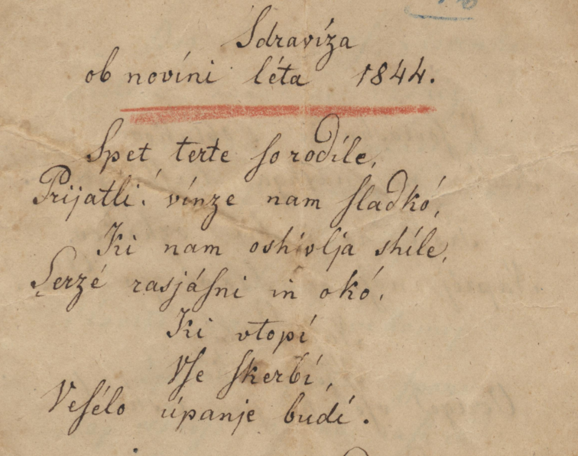 Sdravíza
ob novíni léta 1844.
Spet terte ſo rodíle,
Prijatli! vínze nam ſladkó,
Ki nam oshivlja shíle,
Serzé rasjáſni in okó,
Ki vtopí
Vſe ſkerbí,
Veſélo úpanje budí.